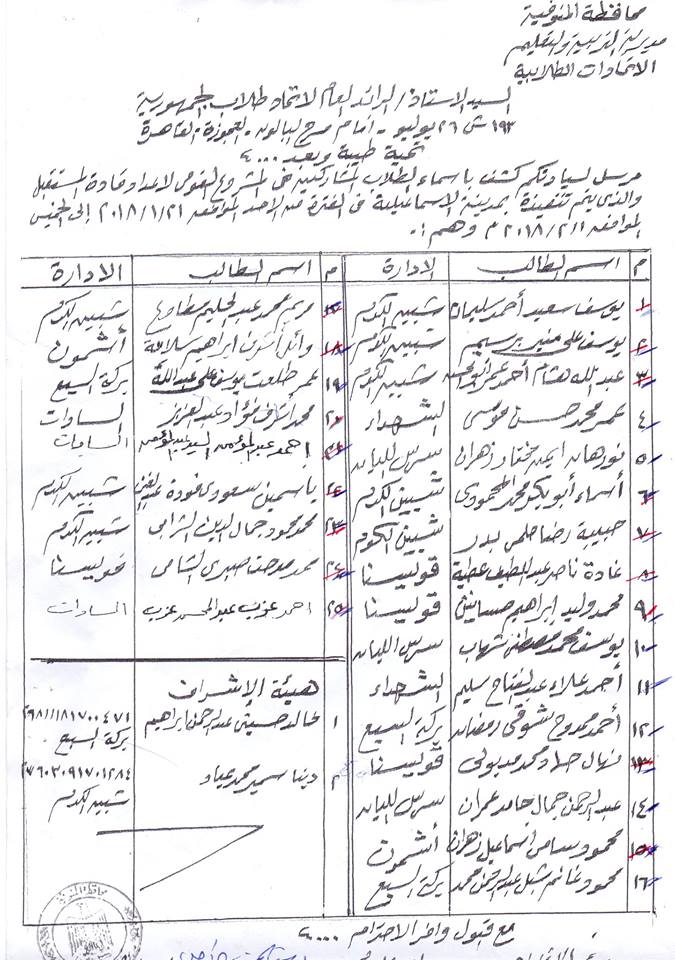 محافظة المنوفية
مديرية التربية والتعليم
الاتحادات الطلابية
السيد الاستاذ / الرائد العام لاتحاد طلاب الجمهورية
١٩٣ ش ٢٦ يوليو - امام مسرح البالون - العجوزة - القاهرة
تحية طيبة وبعد ....
مرسل لسيادتكم كشف بأسماء الطلاب المشاركين في المشروع القومى لاعداد قادة المستقبل
والذى يتم تنفيذة بمدينة الاسماعيلية فى الفترة من الاحد الموافق ٢٠١٨/١/٢١ إلى الخميس
الموافق ٢٠١٨/٢/١ م وهم :.
م اسم الطالب الادارة م اسم الطالب الادارة
١ يوسف سعيد أحمد سليمان شبين الكوم
٢ يوسف على منير برسيم شبين الكوم
٣ عبدالله هشام أحمد شبين الكوم
٤ عمر محمد حسن موسى الشهداء
٥ نورهان ايمن مختار زهران سرس الليان
٦ أسماء أبو بكر محمد المحمودى شبين الكوم
٧ حبيبة رضا حلمى بدر شبين الكوم
٨ غادة ناصر عبداللطيف عطية قويسنا
٩ محمد وليد إبراهيم قويسنا
١٠ يوسف محمد مصطفى شهاب سرس الليان
١١ أحمد علاء عبدالفتاح سليم الشهداء
١٢ أحمد ممدوح شوقى رمضان بركة السبع
١٣ نهال حماد محمد مدبولى قويسنا
١٤ عبدالرحمن جمال حامد عمران سرس الليان
١٥ محمود سامى اسماعيل زهران أشمون
١٦ محمود غانم شبل عبدالرحمن محمد بركة السبع
١٧ مريم محمد عبدالحليم مطاوع شبين الكوم
١٨ وائل ابراهيم سلامة أشمون
١٩ عمر طلعت يوسف على عبدالله بركة السبع
٢٠ محمد أشرف فؤاد عبدالعزيز السادات
٢١ احمد عبدالمؤمن السيد عبدالمؤمن السادات
٢٢ ياسمين سعودى فودة شبين الكوم
٢٣ محمد محمود جمال الدين شبين الكوم
٢٤ محمد مدحت صبرى الشامى قويسنا
٢٥ احمد عزب عبدالمحسن عزب السادات
هيئة الإشراف
١ خالد حسينى عبدالرحمن ابراهيم
بركة السبع
٢ دينا سمير محمد عياد ٢٧٦٠٣٠٩١٧٠١٢٨٤
شبين الكوم
مع قبول وافر الاحترام ....